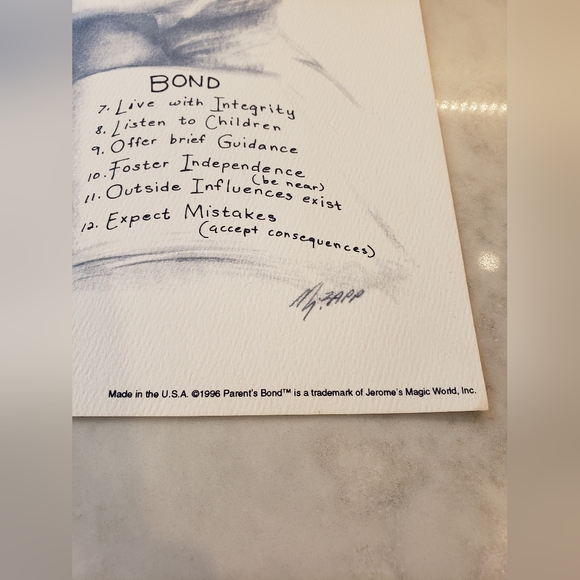 BOND
7. Live with Integrity
8. Listen to Children
9. Offer brief Guidance
10. Foster Independence
(be near)
11. Outside Influences exist
12. Expect Mistakes
(accept consequences)
Zapp
Made in the U.S.A. ©1996 Parent's Bond™ is a trademark of Jerome's Magic World, Inc.